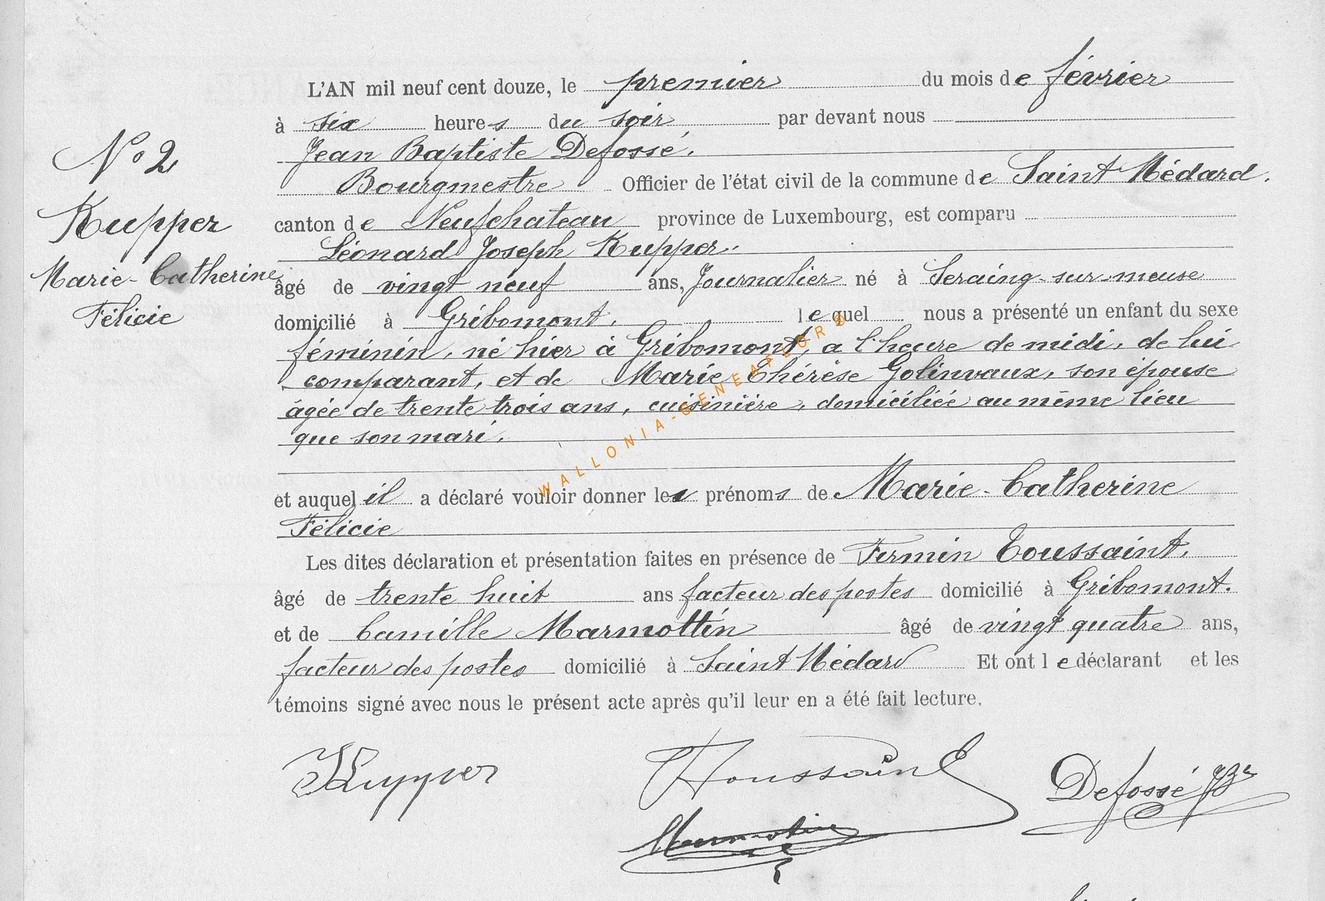 N° 2
Kupper
Marie-Catherine
Félicie
L'AN mil neuf cent douze, le premier du mois de février
à six heures du soir par devant nous
Jean Baptiste Defossé,
Bourgmestre Officier de l'état civil de la commune de Saint Médard,
canton de Neufchateau province de Luxembourg, est comparu
Léonard Joseph Kupper,
âgé de vingt neuf ans, Journalier né à Seraing-sur-meuse
domicilié à Gribomont, lequel nous a présenté un enfant du sexe
féminin, né hier à Gribomont, a l'heure de midi, de lui
comparant, et de Marie Thérèse Golinvaux, son épouse
âgée de trente trois ans, cuisinière, domiciliée au même lieu
que son mari.
et auquel il a déclaré vouloir donner les prénoms de Marie-Catherine
Félicie
Les dites déclaration et présentation faites en présence de Firmin Toussaint,
âgé de trente huit ans facteur des postes domicilié à Gribomont.
et de Camille Marmottin âgé de vingt quatre ans,
facteur des postes domicilié à Saint Médard Et ont le déclarant et les
témoins signé avec nous le présent acte après qu'il leur en a été fait lecture.
Kupper Toussaint Defossé JBte
Marmottin
WALLONIA-GENEAFLORD